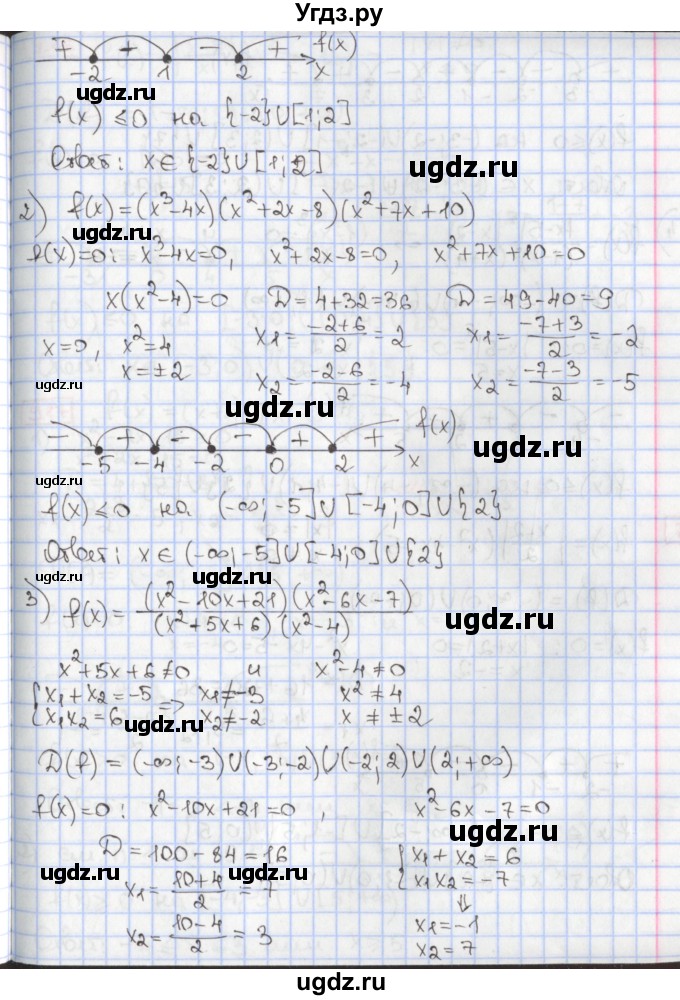 Угдз.ру
+ + - + f(x)
-2 1 2 x
ugdz.ru
f(x) ≤ 0 на {-2}∪[1;2]
ugdz.ru
Ответ: x ∈ {-2}∪[1;2]
ugdz.ru
2) f(x) = (x³-4x)(x²+2x-8)(x²+7x+10)
ugdz.ru
f(x)=0: x³-4x=0, x²+2x-8=0, x²+7x+10=0
x(x²-4)=0 D = 4+32=36 D = 49-40=9
x=0, x²=4 x₁ = (-2+6)/2 = 2 x₁ = (-7+3)/2 = -2
x=±2 x₂ = (-2-6)/2 = -4 x₂ = (-7-3)/2 = -5
ugdz.ru
ugdz.ru
- + - - + + f(x)
-5 -4 -2 0 2 x
ugdz.ru
ugdz.ru
ugdz.ru
f(x) ≤ 0 на (-∞;-5]∪[-4;0]∪{2}
Ответ: x ∈ (-∞;-5]∪[-4;0]∪{2}
ugdz.ru
3) f(x) = (x²-10x+21)(x²-6x-7)/(x²+5x+6)(x²-4)
ugdz.ru
x²+5x+6≠0 и x²-4≠0
{x₁+x₂=-5 => x₁≠-3 x²≠4
{x₁x₂=6 x₂≠-2 x ≠ ±2
ugdz.ru
ugdz.ru
D(f) = (-∞;-3)∪(-3;-2)∪(-2;2)∪(2;+∞)
f(x)=0: x²-10x+21=0, x²-6x-7=0
ugdz.ru
D = 100-84=16 {x₁+x₂=6
x₁ = (10+4)/2 = 7 {x₁x₂=-7
ugdz.ru
ugdz.ru
⇓
x₂ = (10-4)/2 = 3 x₁=-1
ugdz.ru
x₂=7
ugdz.ru
ugdz.ru